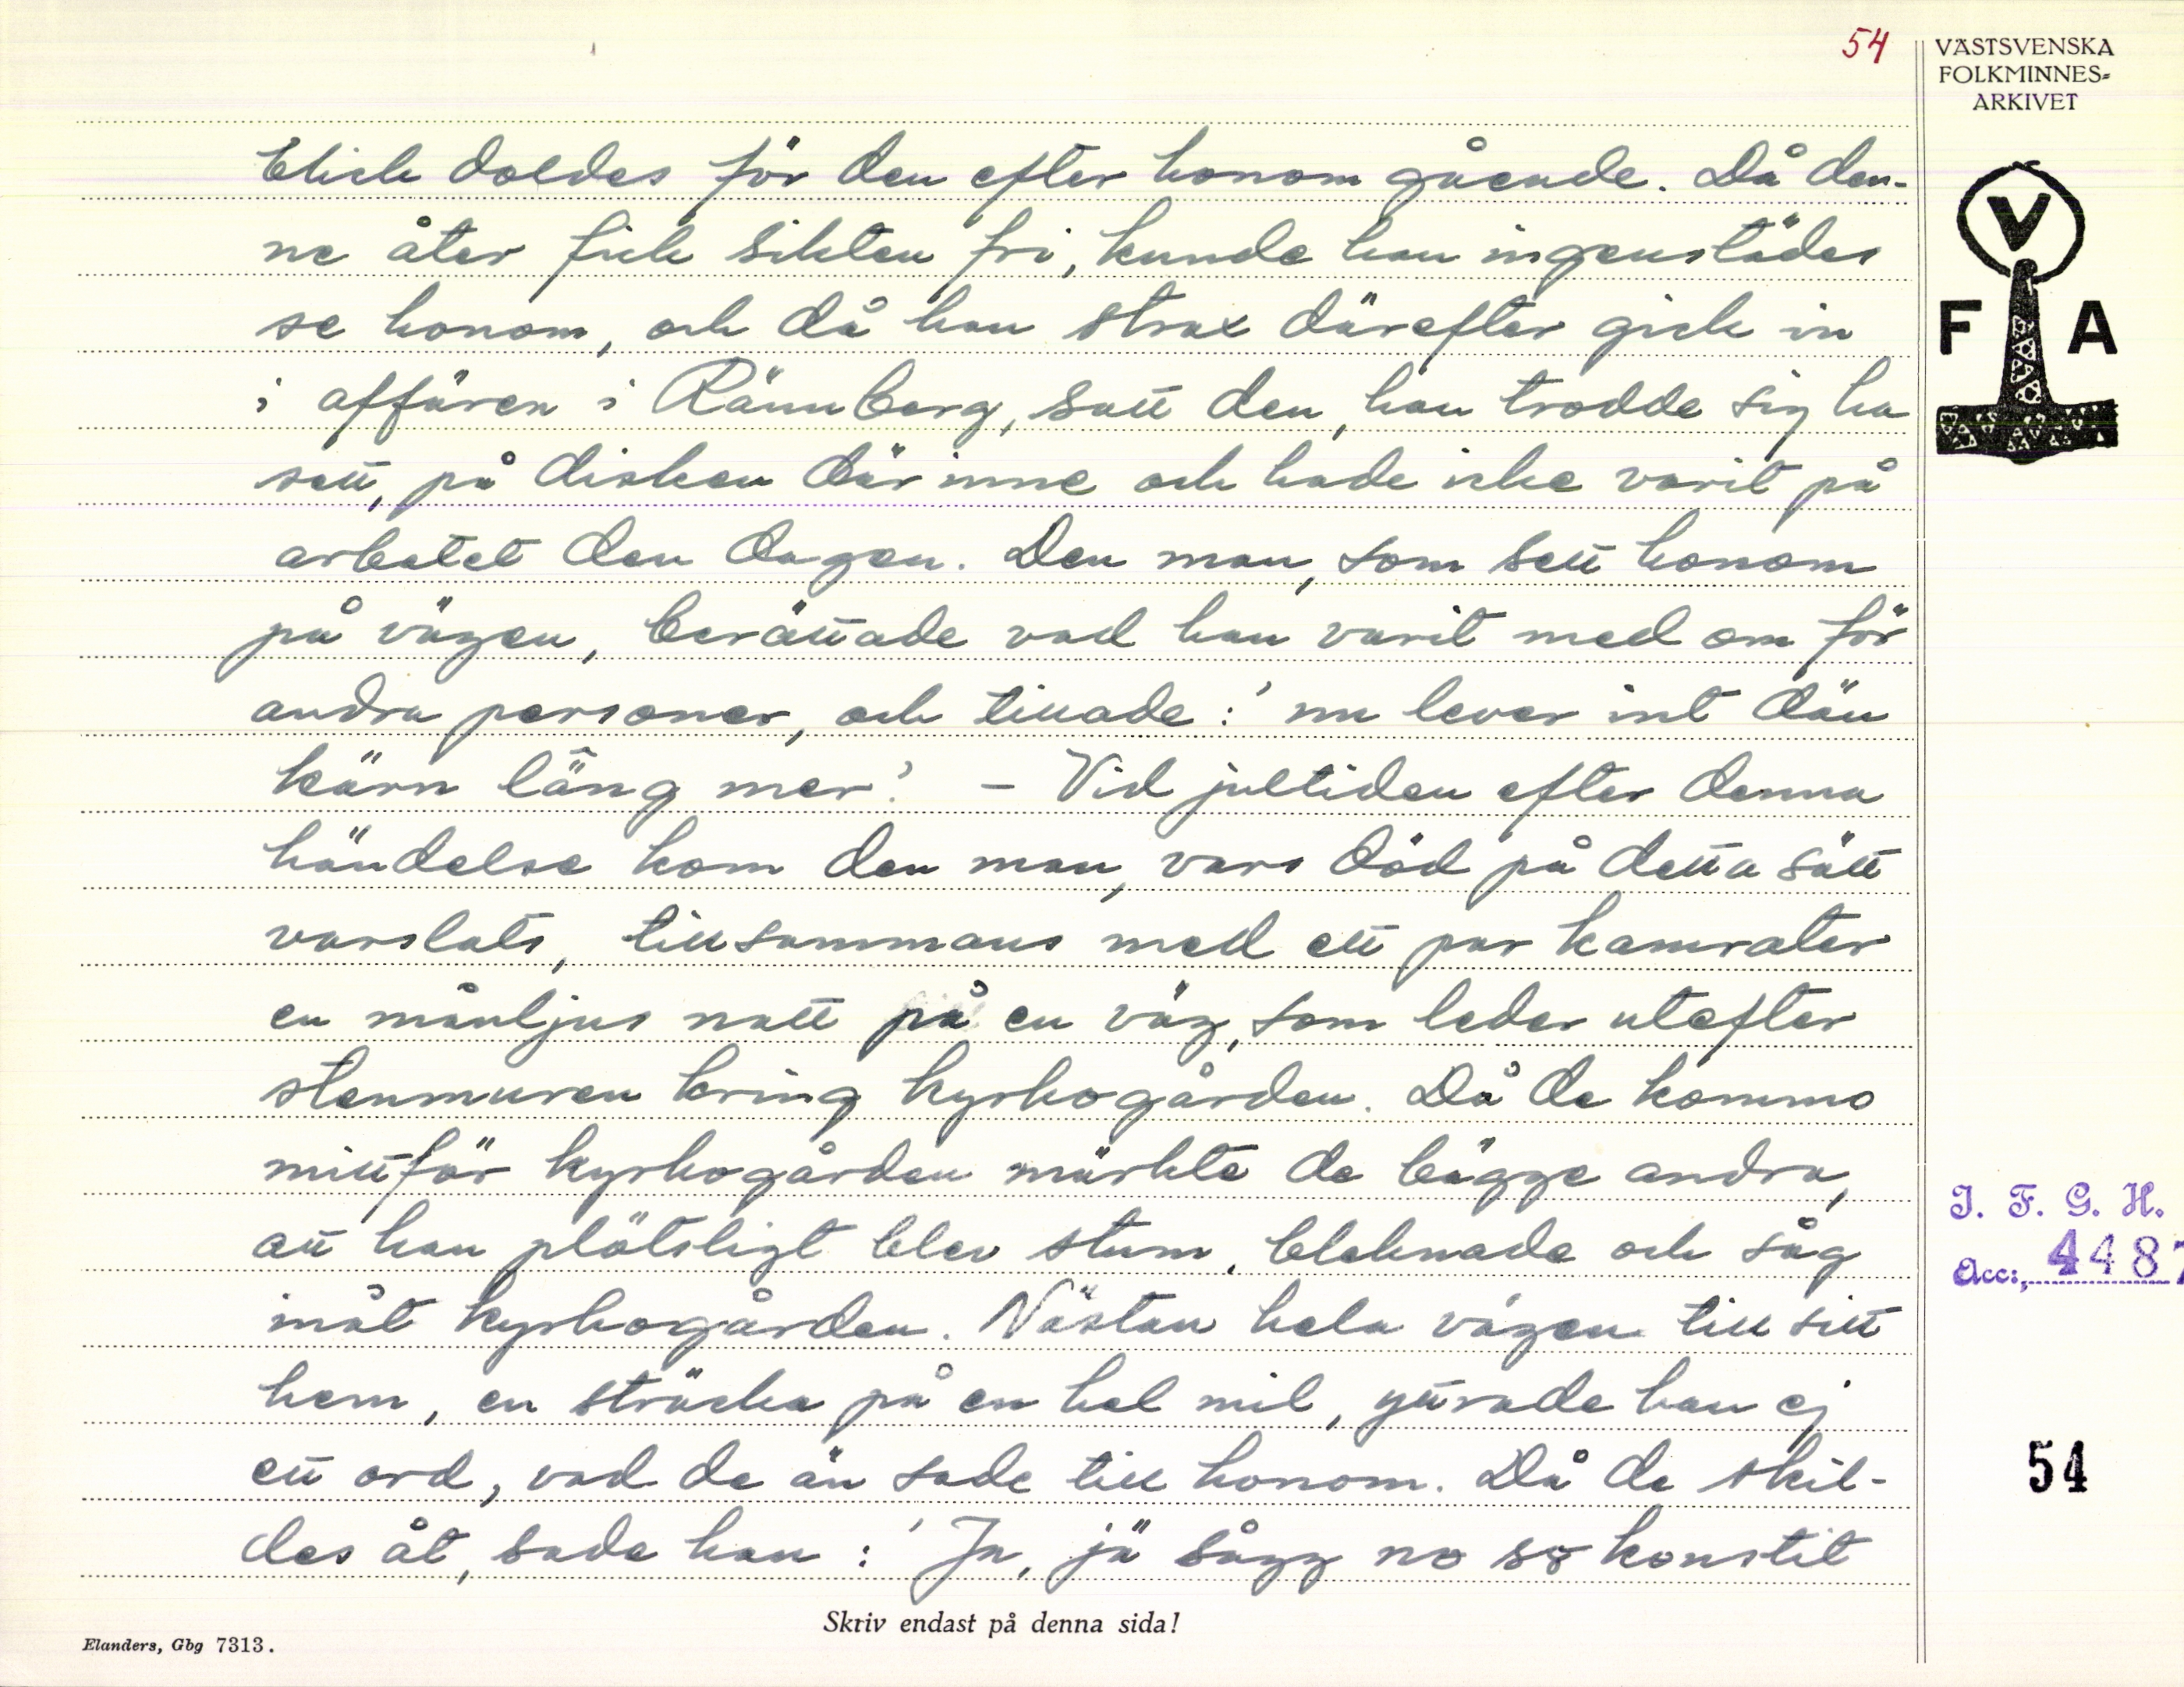 54
VÄSTSVENSKA
FOLKMINNES=
ARKIVET
blick doldes för den efter honom gående. Då den-
ne åter fick sikten fri, kunde han ingenstädes
se honom, och då han strax därefter gick in
i affären i Rännberg, satt den, han trodde sig ha
sett, på disken där inne och hade icke varit på
arbetet den dagen. Den man, som sett honom
på vägen, berättade vad han varit med om för
andra personer, och tillade: 'nu lever int dän
kärn läng mer'. – Vid jultiden efter denna
händelse kom den man, vars död på detta sätt
varslats, tillsammans med ett par kamrater
en månljus natt på en väg, som leder utefter
stenmuren kring kyrkogården. Då de kommo
mittför kyrkogården märkte de bägge andra,
att han plötsligt blev stum, bleknade och såg
inåt kyrkogården. Nästan hela vägen till sitt
hem, en sträcka på en hel mil, yttrade han ej
ett ord, vad de än sade till honom. Då de skil-
des åt, sade han: 'Ja, jä sågg no so konstit
V
F A
J. F. G. H.
Acc:, 4487
54
Skriv endast på denna sida!
Elanders, Gbg 7313.